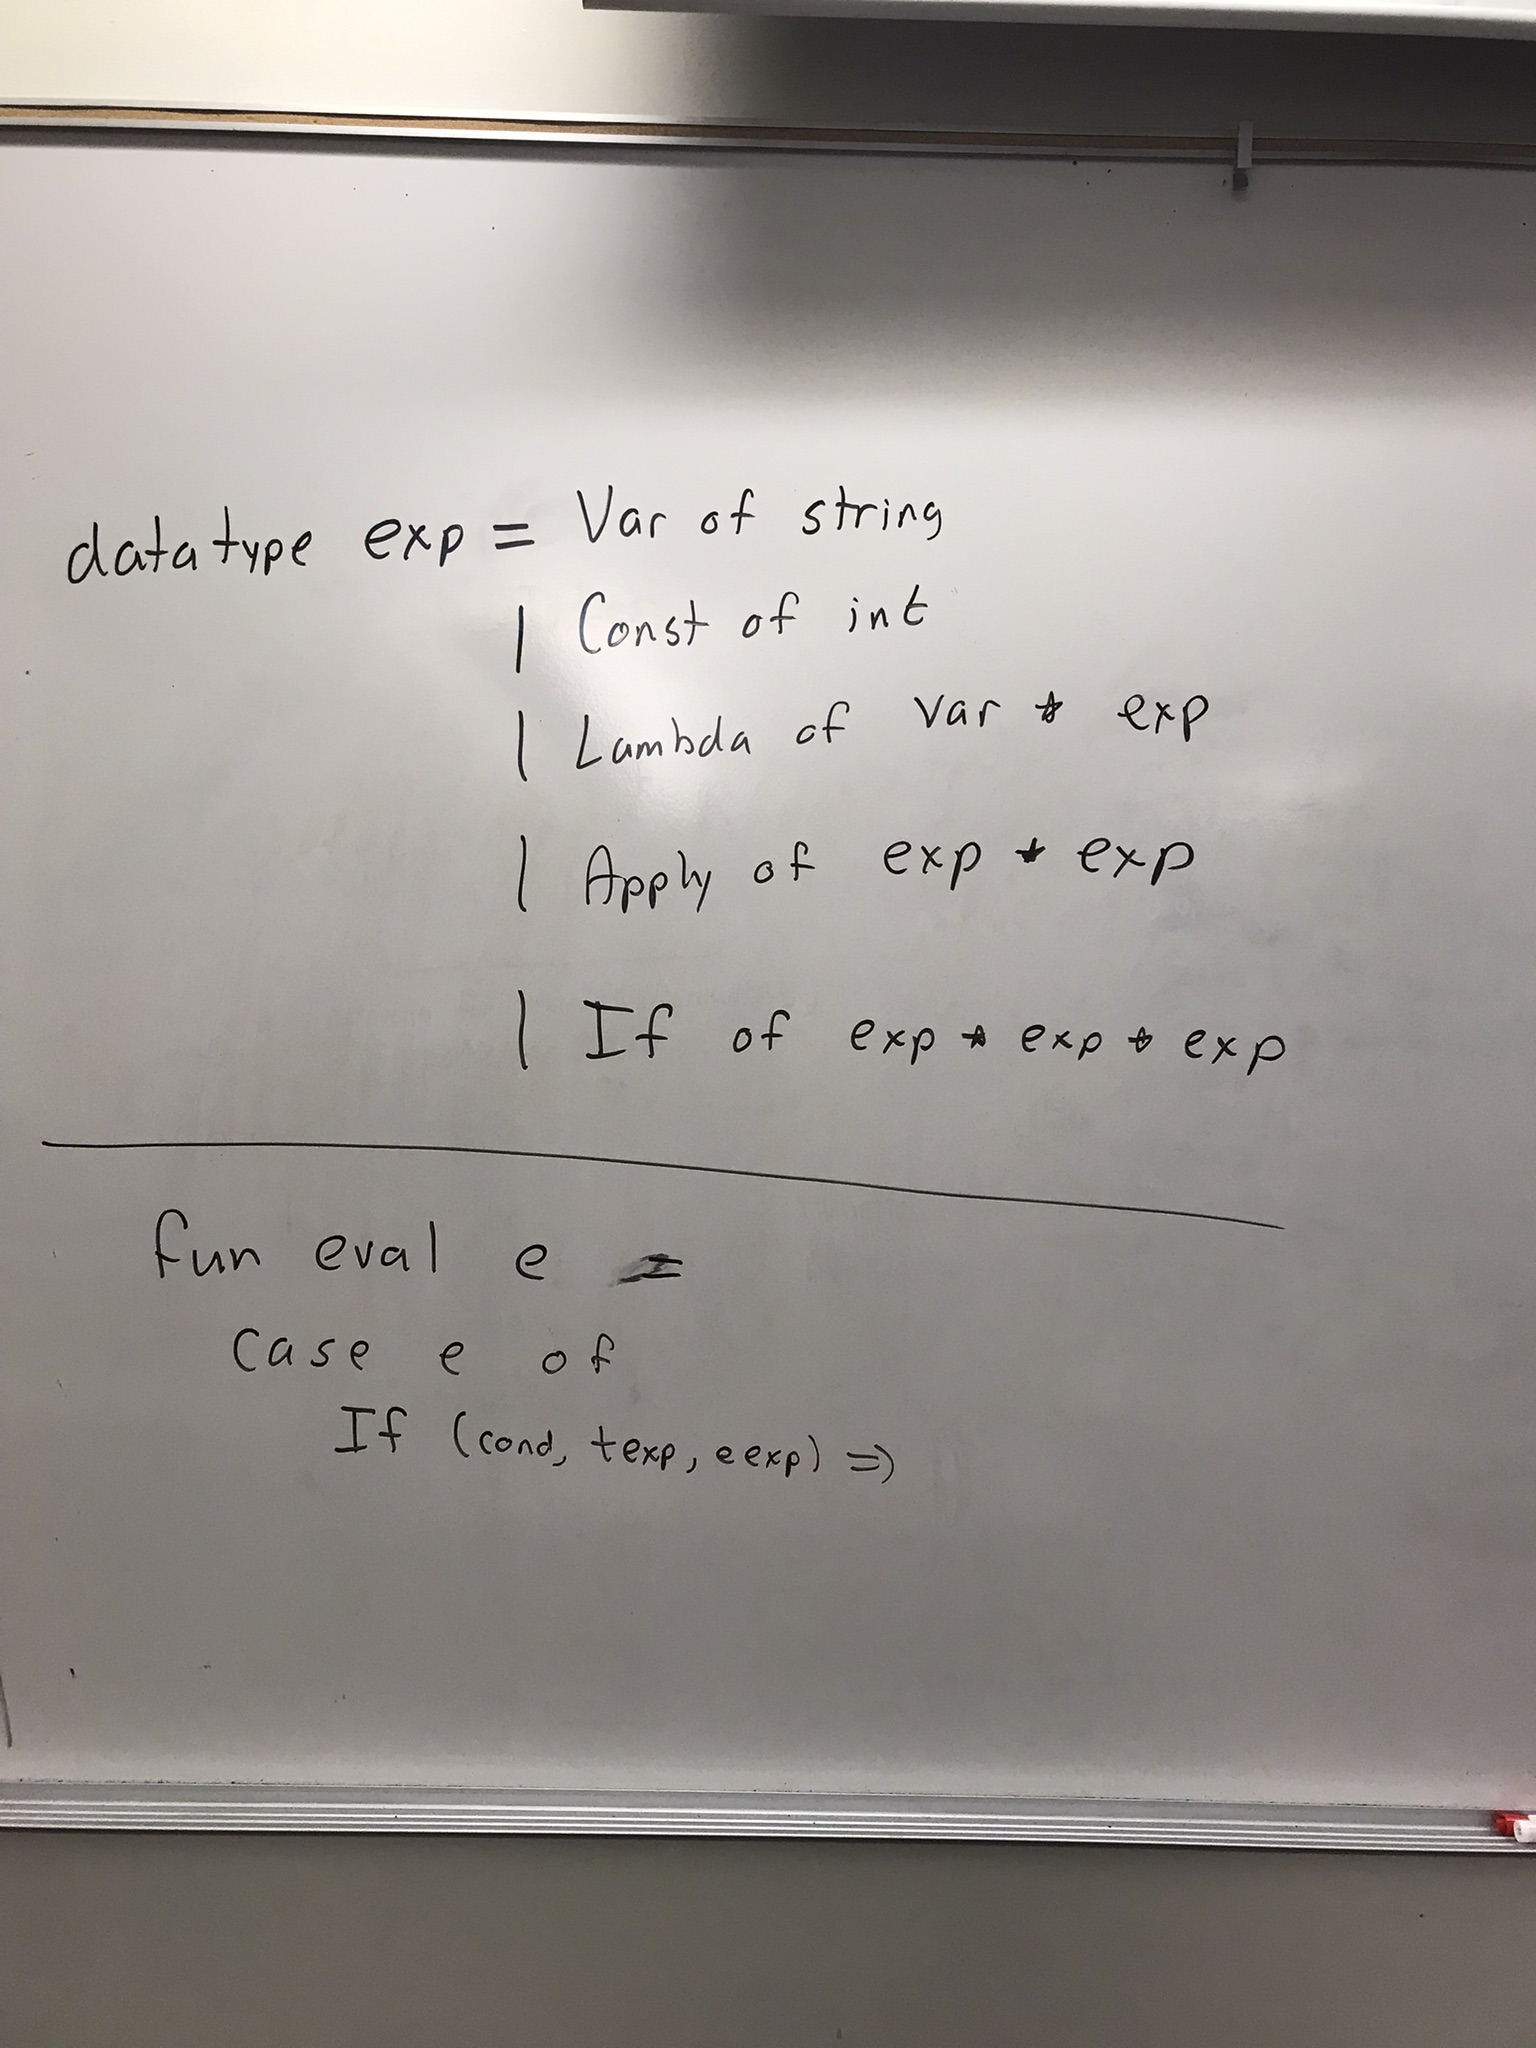 datatype exp = Var of string
| Const of int
| Lambda of var * exp
| Apply of exp * exp
| If of exp * exp * exp
fun eval e =
case e of
If (cond, texp, eexp) =>